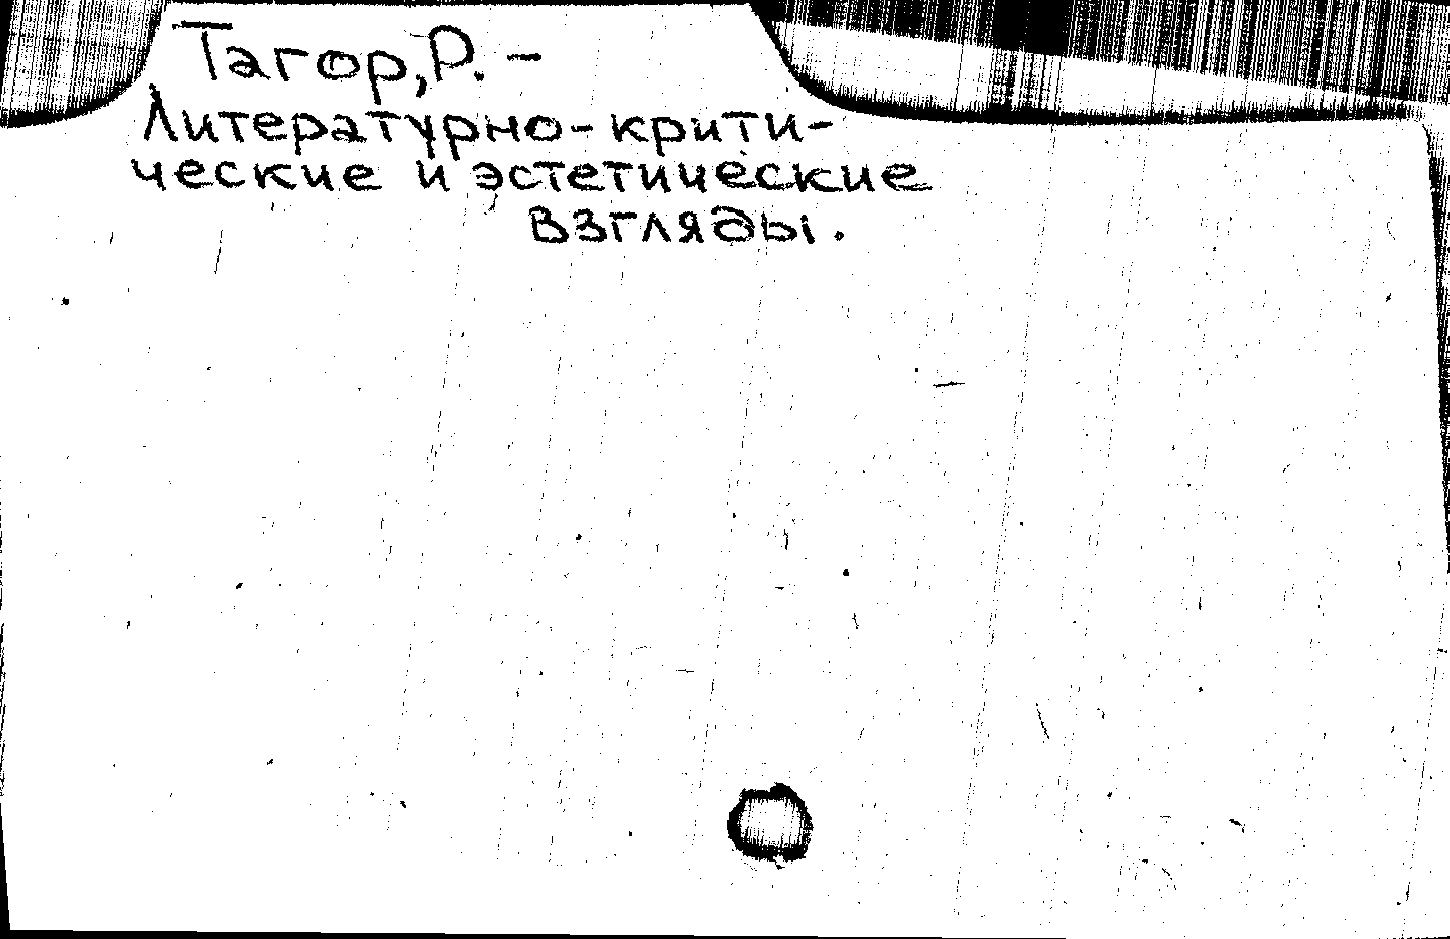 Тагор, Р. -
Литературно-крити-
ческие и эстетические
взгляды.